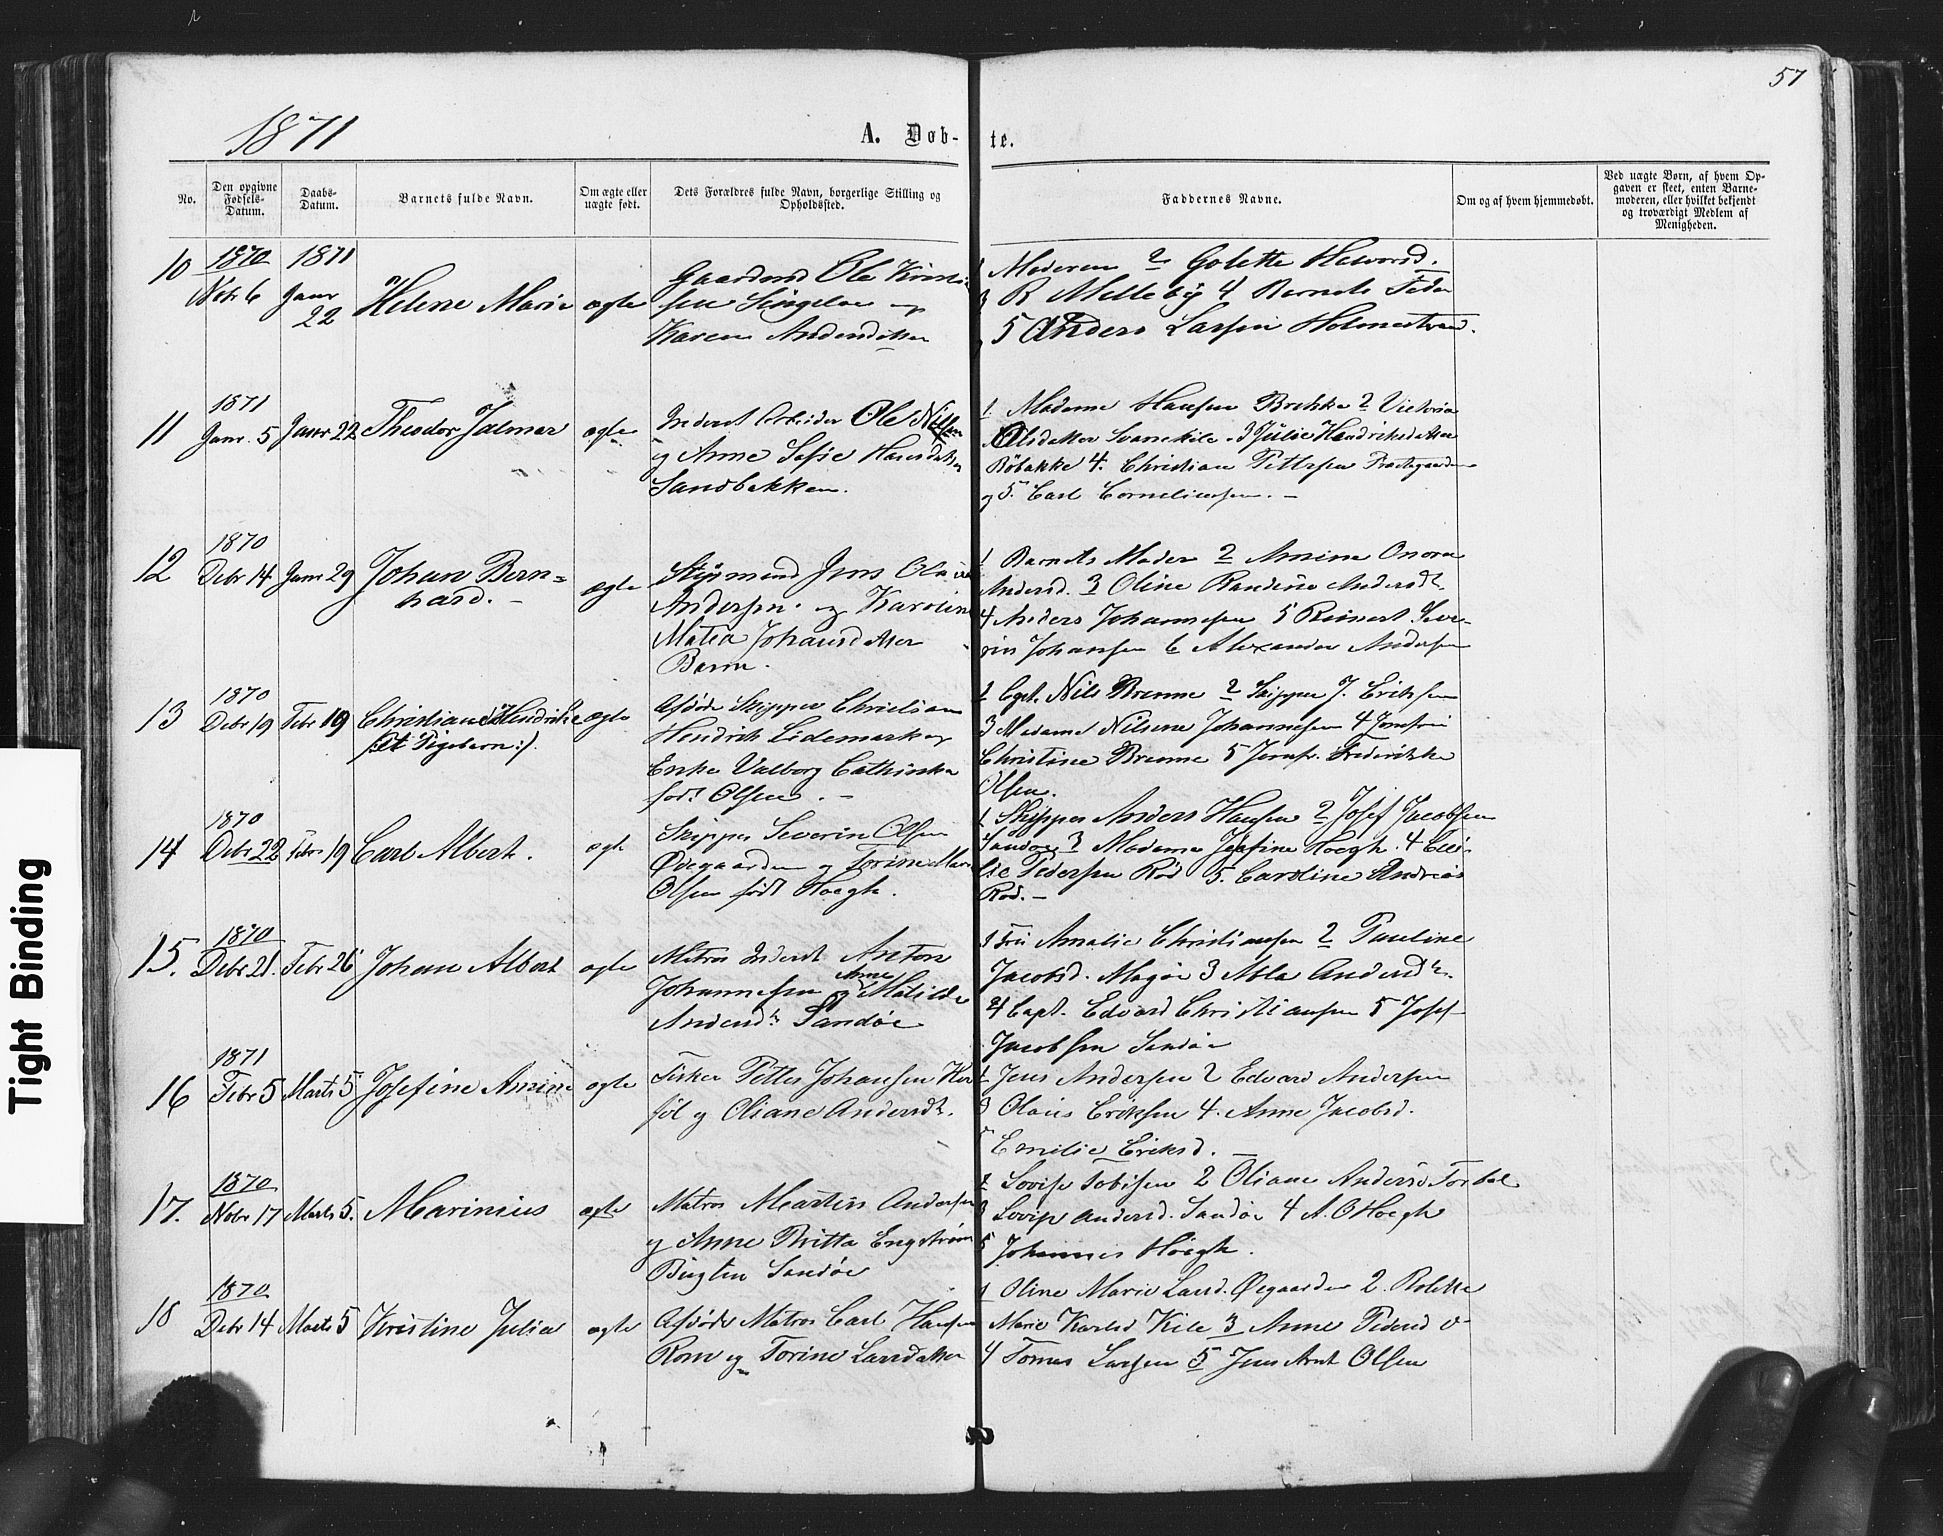 57
1871
A. Døb- te.
No.
Den opgivne Fødsels-Datum.
Daabs-Datum.
Barnets fulde Navn.
Om ægte eller uægte født.
Dets Forældres fulde Navn, borgerlige Stilling og Opholdssted.
Faddernes Navne.
Om og af hvem hjemmedøbt.
Ved uægte Børn, af hvem Op-
gaven er skeet, enten Barne-
moderen, eller hvilket bekjendt
og troværdigt Medlem af
Menigheden.
10 1870 Nobr 6 1871 Janr 22 Helene Marie ægte
Gaardmd Ole
Karen Andersdatter
1 Moderen 2 Golette
3 R Melleby 4 Barnets Fader
5 Anders Larsen Holmestrand.
11 1871 Janr. 5 Janr 22 Theodor Jalmar ægte
Inderst Arbeider Ole Nilsen
og Anne Sofie Hansdatter
Sandbakken.
1 Madame Hansen Brekke 2 Victoria
Olsdatter Svanekile 3 Julie Hendriksdatter
Røbakke 4. Christian Pettersen
og 5. Carl Corneliussen. -
12 1870 Debr 14 Janr 29 Johan Bern=
hard. - ægte
Styrmand Jens
Andersen. og Karoline
Matea Johansdatter
Barm.
1 Barnets Moder 2 Amine Onora
Andersd. 3 Oline Randine Andersdt.
4 Anders Johannesen 5 Reinert Seve-
rin Johansen 6 Alexander Andersen
13 1870 Debr 19 Febr 19 Christiane Hendrikke ægte
(: Et Pigebarn :).
Afdøde Skipper Christian
Hendrik Lidemark og
Enke Valborg Cathinka
født Olsen. -
1 Capt. Nils Brenne 2 Skipper J. Eriksen
3 Madame Nilsine Johannesen 4 Jomfru
Christine Brenne 5 Jomfr. Frederikke
Olsen.
14 1870 Debr 22 Febr 19 Carl Albert. ægte
Skipper Severin Olsen
Ødegaarden og Torine
Olsen født Hoegh.
1 Skipper Anders Hansen 2 Josef Jacobsen
Sandøe 3 Madame Josefine Hoegh. 4
Pedersen Rød 5. Caroline
Rød. -
15. 1870 Debr 21. Febr 26 Johan Albert ægte
Matros Inderst Anton
Johannesen og Anne Matilde
Andersdt. Sandøe
1 Fru Amalie Christiansen 2 Pauline
Jacobsd. Magøe 3 Andersdt.
4 Capt. Edvard Christiansen 5 Josef
Jacobsen Sandøe
16 1871 Febr 5 Marts 5 Josefine Amine ægte
Fisker Petter Johansen Her-
føl og Oliane Andersdt.
1 Jens Andersen 2 Edvard Andersen
3 Olaus Eriksen 4. Anne Jacobsd.
5 Emilie Eriksd. -
17. 1870 Nobr 17 Marts 5. Marinius ægte
Matros Martin Andersen
og Anne Britta Engstrøm
Bugten Sandøe
1 Lovise Tobisen 2 Oliane Andersd
3 Lovise Andersd. Sandøe 4 A. O Hoegh
5 Johannes Höegh.
18 1870 Debr 14 Marts 5 Kristine Julia ægte
Afdøde Matros Carl Hansen
Rom og Torine Larsdatter
1 Oline Marie Larsd. Øegaarden 2.
Marie Karlsd Kile 3 Anne Pedersd
4 Tomas Larsen 5 Jens Arnt Olsen
Tight Binding